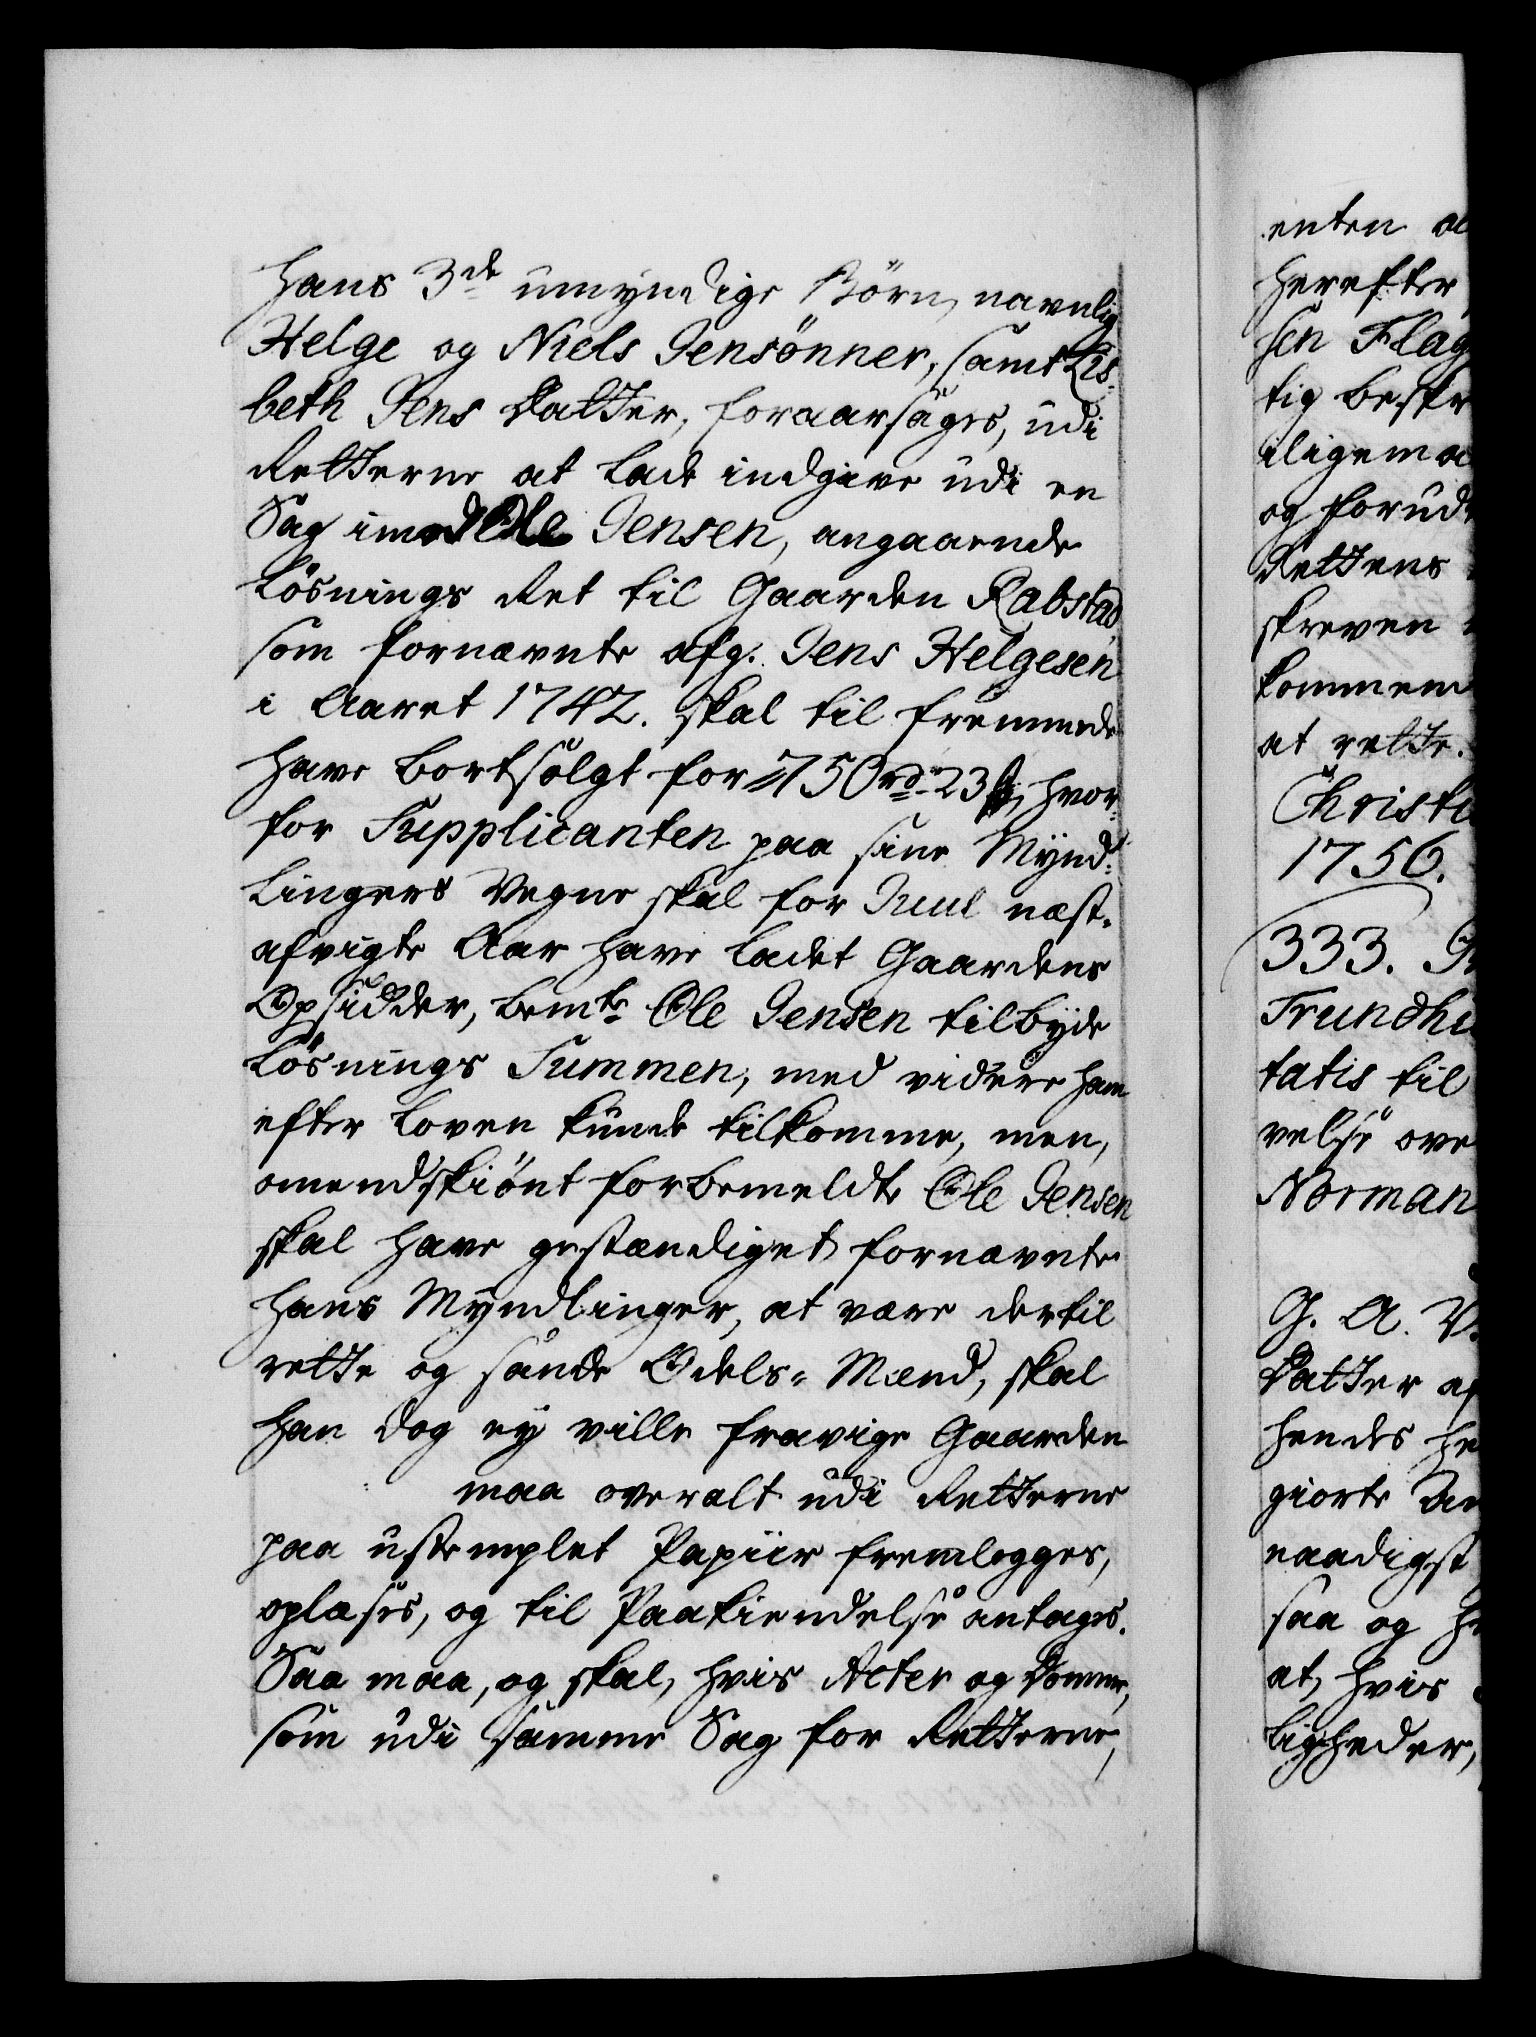 hans 3de umyndige Börn, navnlig
Helge og Niels Jensönner, samt Lis-
beth Jens Datter, foraarsages, udi
Retterne at lade indgive udi en
Sag imod Ole Jensen, angaaende
Lösnings Ret til Gaarden Rabstad
som fornævnte afg. Jens Helgesen
i Aaret 1742. skal til fremmede
have bortsolgt for 750 rd. 23 ß, hvor-
for Supplicanten paa sine Mynd-
lingers Vegne skal for Juul næst-
afvigte Aar have ladet Gaardens
Opsidder, bemte Ole Jensen tilbyde
Lösnings Summen, med videre ham
efter Loven kunde tilkomme, men,
omendskiönt forbemeldte Ole Jensen
skal have gestændiget fornævnte
hans Myndlinger, at være dertil
rette og sande Odels-Mænd, skal
han dog ey ville fravige Gaarden
maa overalt udi Retterne
paa ustemplet Papiir fremlegges,
oplæses, og til Paakiendelse antages.
Saa maa, og skal, hvis Acter og Domme,
som udi samme Sag for Retterne,
enten a
herefter
sen Flag
tig beskr
iligemaa
og forud
Rettens
skreven
kommen
at rette.
Christi
1756.
333. G
Frundhi
tatis til
velse ove
Norman
G. A. V.
Datter af
hendes he
giorte An
naadigst
saa og h
at, hvis
ligheder,